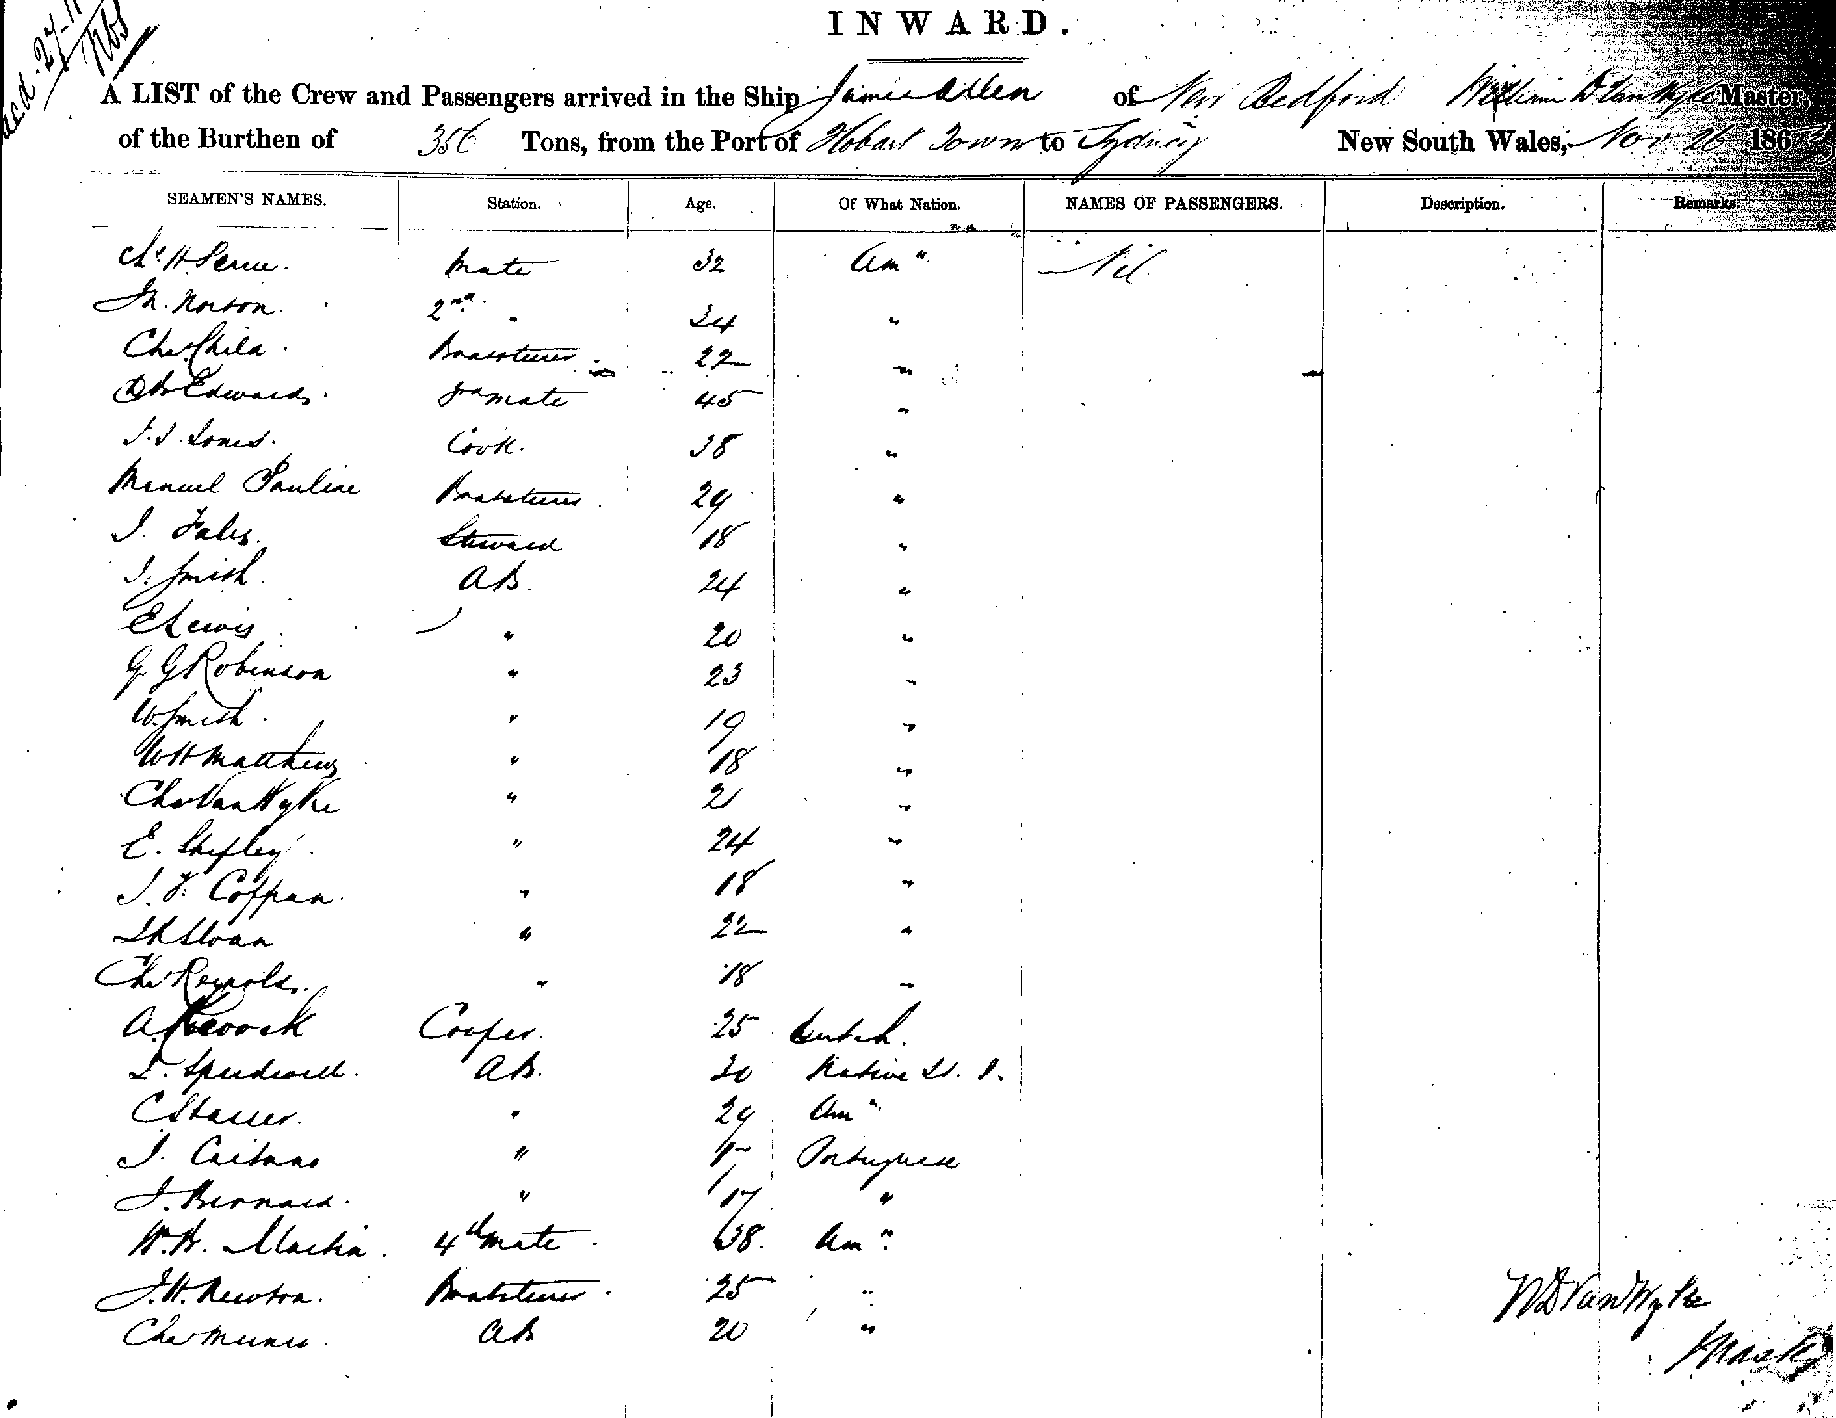 INWARD.
A LIST of the Crew and Passengers arrived in the Ship James Allen of New Bedford William D Van Wyke Master,
of the Burthen of 356 Tons, from the Port of Hobart Town to Sydney New South Wales, Nov 26 186
SEAMEN'S NAMES. Station. Age. Of What Nation. NAMES OF PASSENGERS. Description. Remarks.
H. Mate 32 Am " Nil
Norton. 2nd " 34 "
Chs Child. Boatsteerer 22 "
Edwards. 3rd mate 45 "
J. J. Jones. Cook. 38 "
Manuel Pauline Boatsteerer 29 "
J. Fales. Steward 18 "
J. Smith. AB. 24 "
E Lewis " 20 "
G. G Robinson " 23 "
W. Smith. " 19 "
W H Matthews " 18 "
Chs Van Wyke " 21 "
E. Shipley " 24 "
J. F. Coffran. " 18 "
Sloan " 22 "
Chs Reynols. " 18 "
A. Peacock Cooper. 25
Speedwell. AB. 30 Native
C " 29 Am "
J. Caitano " Portuguese
J. Bernard. " 17 "
W. W. 4th mate 38. Am "
J. H. Newton. Boatsteerer. 25 "
Chs AB 20 "
W D Van Wyke
Master